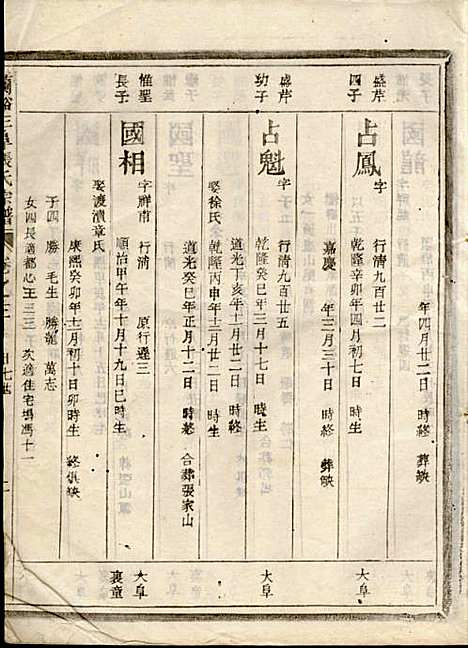 年四月廿二日 時終 葬缺
盛芹
四子
占鳳
字 行清九百廿二
乾隆辛卯年四月初七日 時生
嘉慶 年三月三十日 時終 葬缺
大阜
盛芹
幼子
占魁
字 行清九百廿五
乾隆癸巳年三月十七日 時生
道光丁亥年十二月廿二日 時終
娶徐氏
乾隆丙申年十二月廿二日 時生
道光癸巳年正月十二日 時終 合葬張家山
大阜
惟聖
長子
國相
字祥南 行清 原行遜三
順治甲午年十月十九日巳時生
娶渡瀆章氏
康熙癸卯年十二月初十日卯時生 終俱缺
子四 勝 毛生 勝龍 萬志
女四長適都心王三三子 次適住宅塢馮十一
大阜
裏童